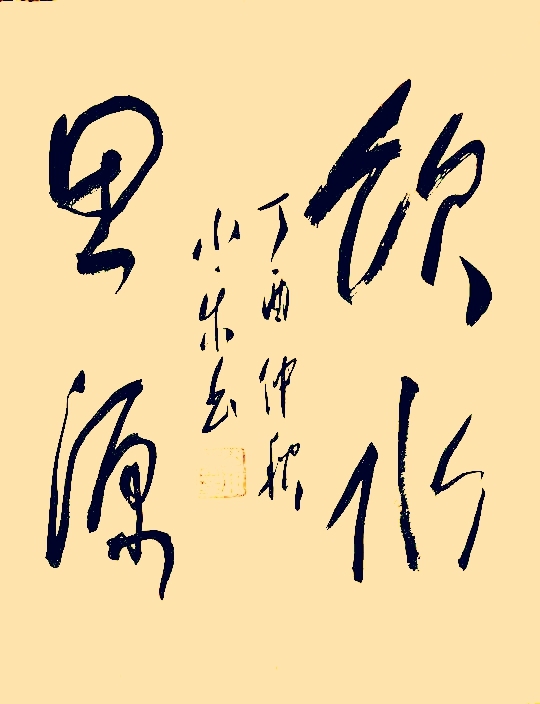 饮水
丁酉仲秋
小朱书
思源